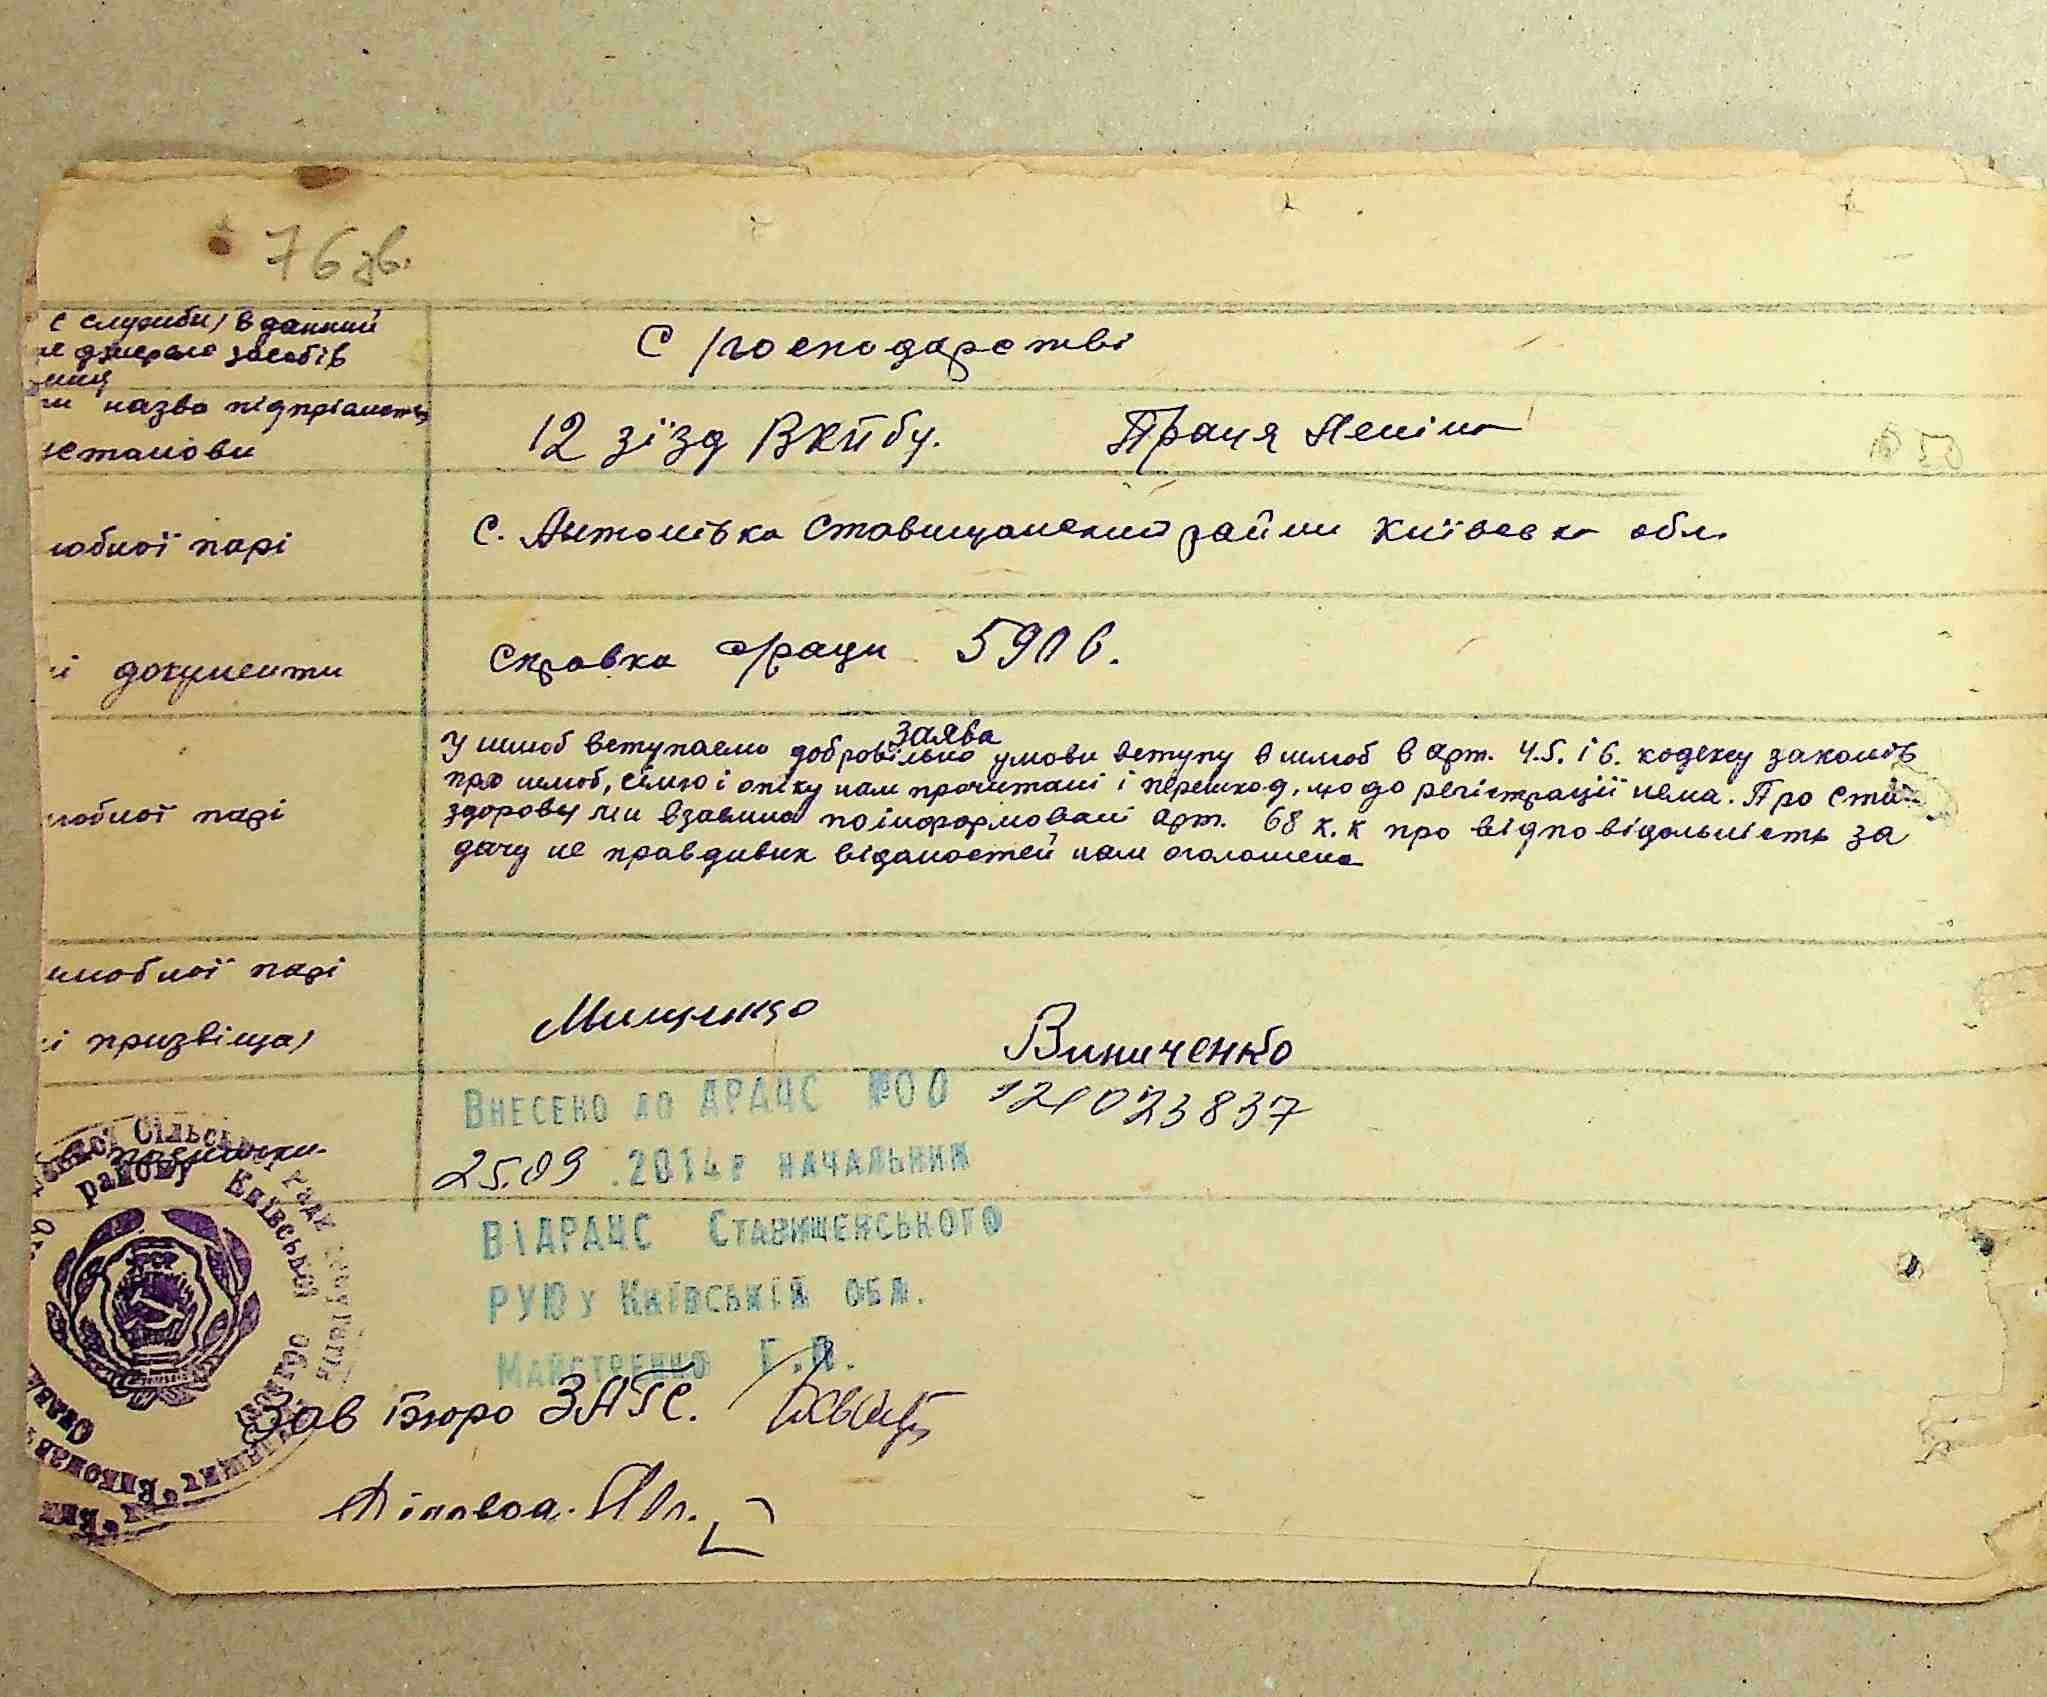 76 зв.
с служби) в данний
джерело засобів
назва підпріємств
установи
С/господарстві
12 зїзд ВКПбу. Праця Леніна
юбної парі
С. Антонівка Ставищанский району Київська обл.
і документи
Справка с/ради
Заява
У шлюб вступаємо добровільно умови вступу в шлюб в арт. 4.5. і 6. кодексу законів
про шлюб, сімю і опіку нам прочитані і перешкод, що до регістрації нема. Про стан
здоровя ми взаємно поінформовані арт. 68 К.К про відповідальність за
дачу не правдивих відомостей нам оголошено
юбної парі
шлюбної парі
і призвіща)
Мищенко
Виниченко
Внесено до ДРАЦС №00 121023837
25.09 .2014р начальник
ВДРАЦС Ставищенського
РУЮ у Київській обл.
Майстренко Г.П.
Зав Бюро ЗАГС.
Діловод.